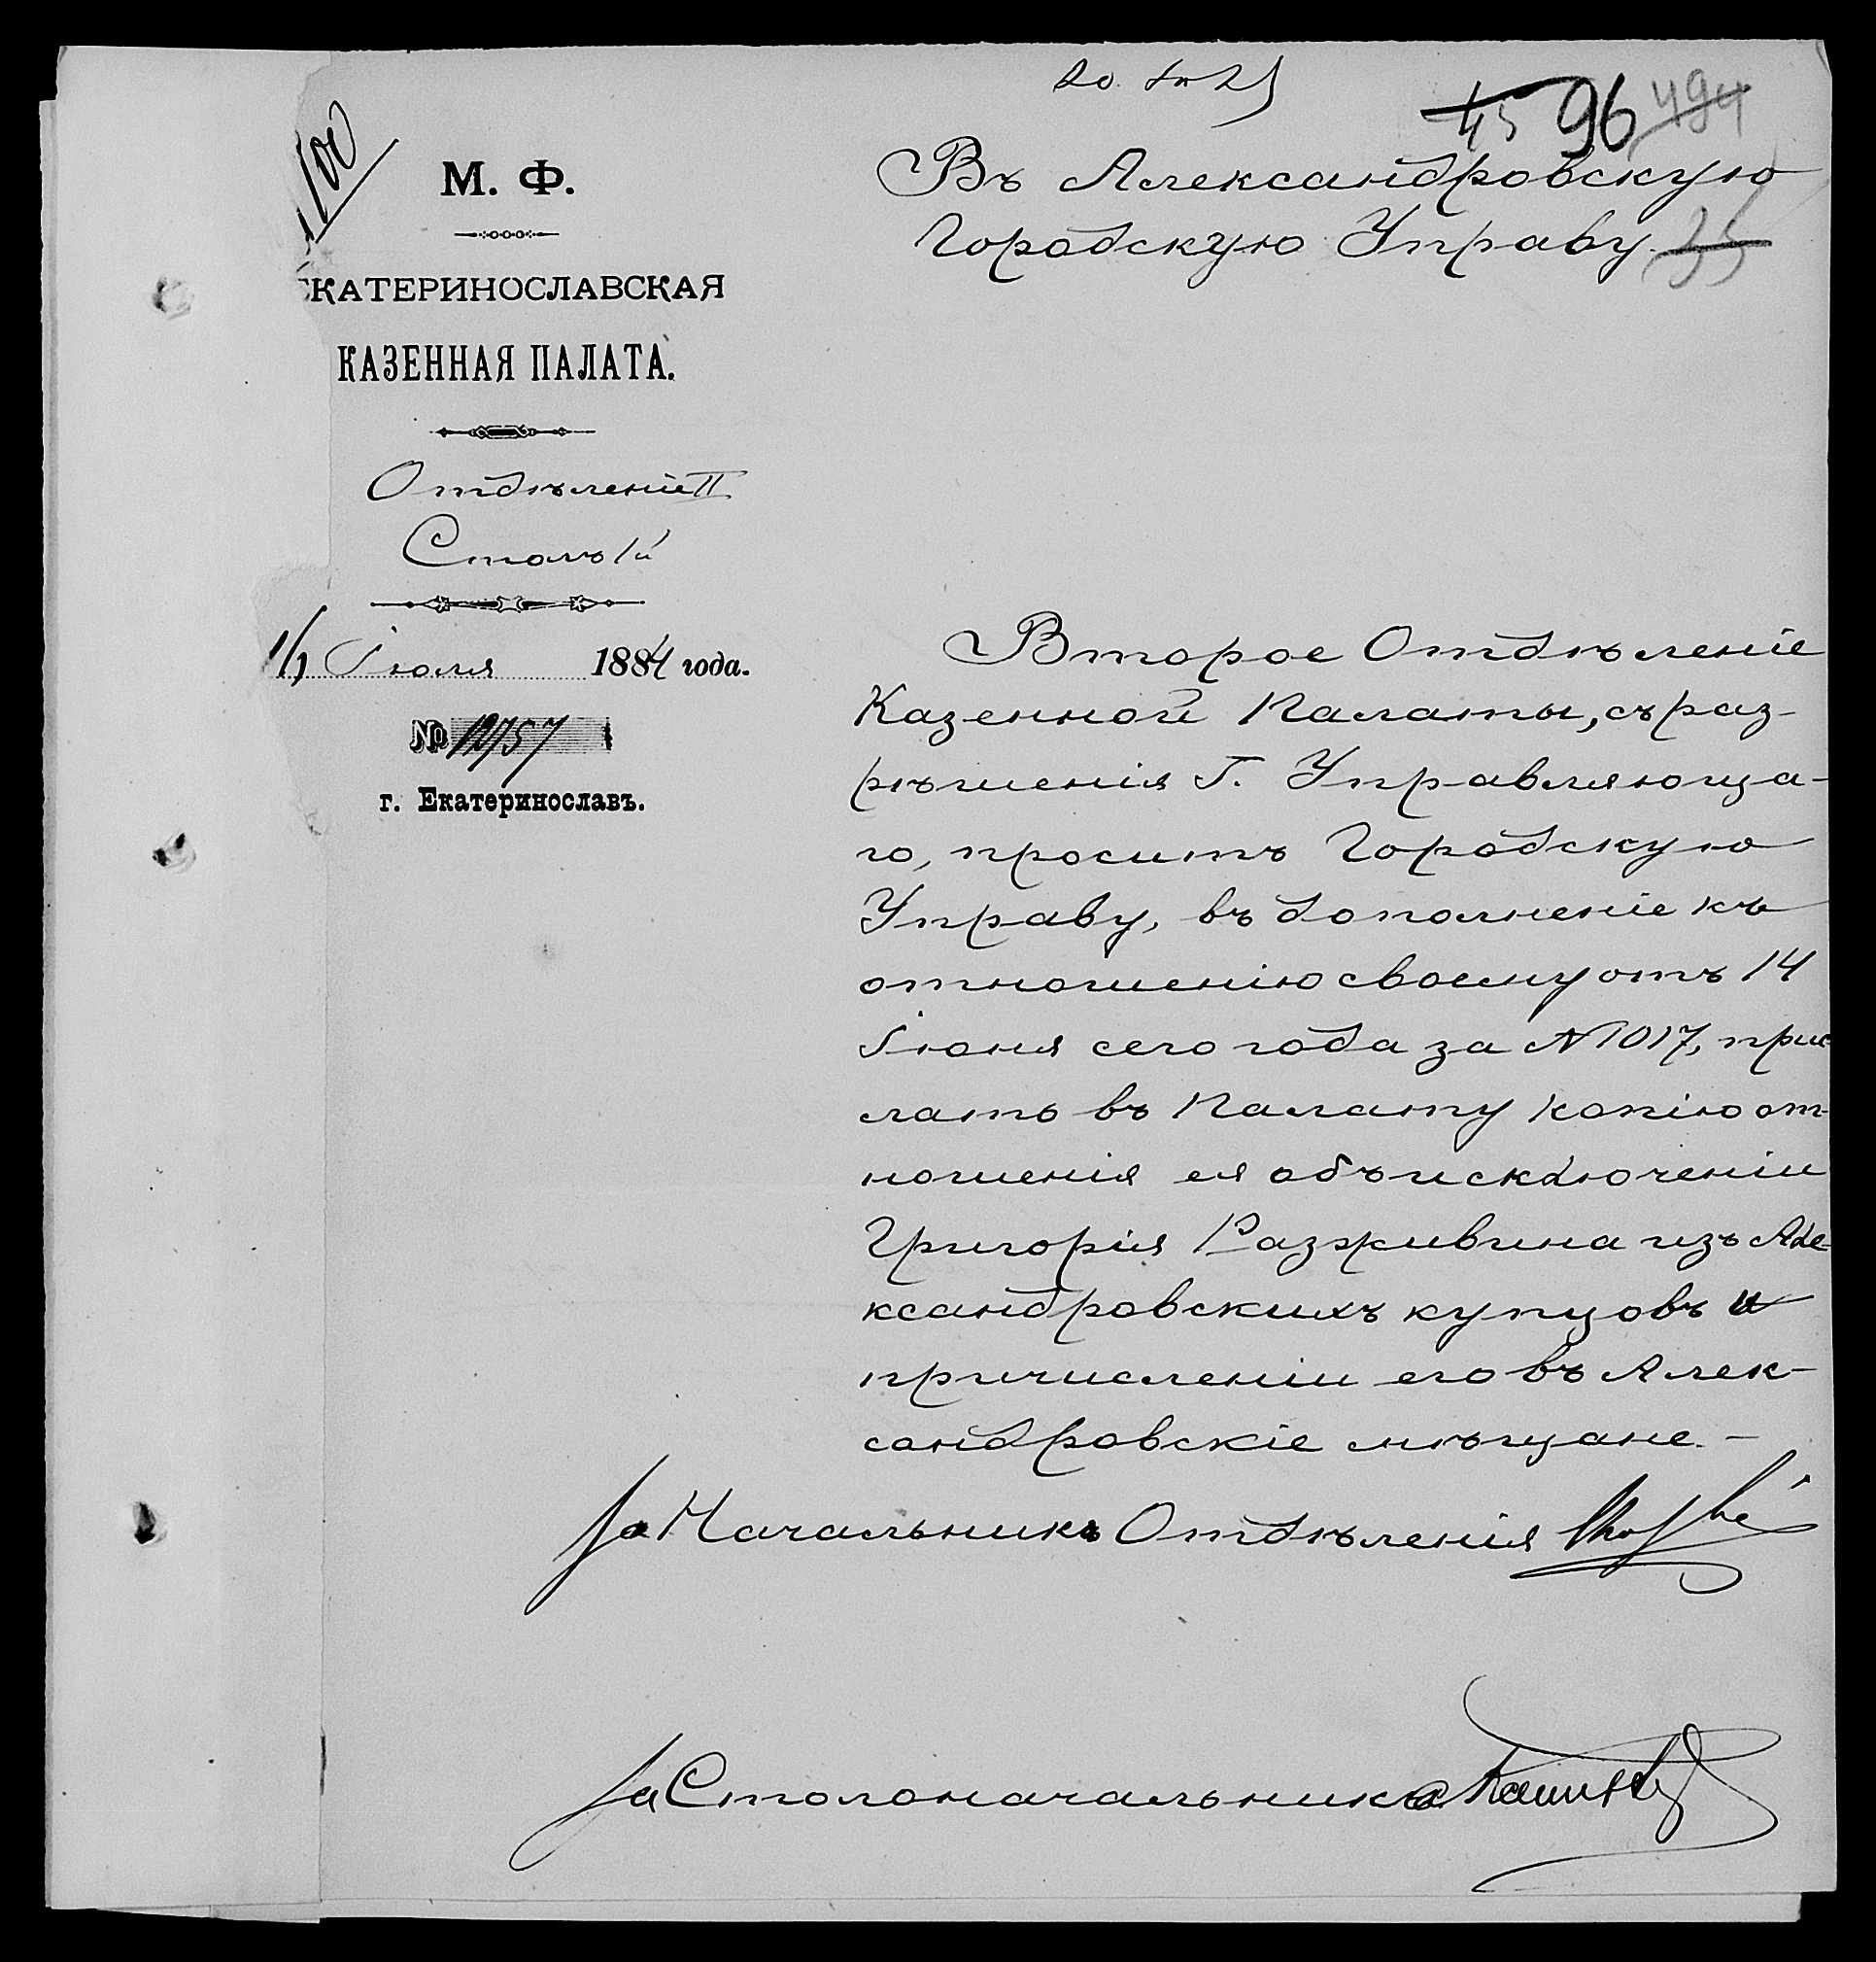 45 96 494
100
М. Ф.
ЕКАТЕРИНОСЛАВСКАЯ
КАЗЕННАЯ ПАЛАТА.
Отдѣленіе II
Столъ 1й
Іюля 1884 года.
№ 12757
г. Екатеринославъ.
Въ Александровскую
Городскую Управу
35
Второе Отдѣленіе
Казенной Палаты, съ раз-
рѣшенія Г. Управляюща-
го, проситъ Городскую
Управу, въ дополненіе къ
отношенію своему отъ 14
Іюня сего года за № 1017, прис
лать въ Палату копію от-
ношенія ея объ исключеніи
Григорія Разживина изъ Але-
ксандровскихъ купцовъ и
причисленіи его въ Алек-
сандровскіе мѣщане. –
За Начальника Отдѣленія
За Столоначальника